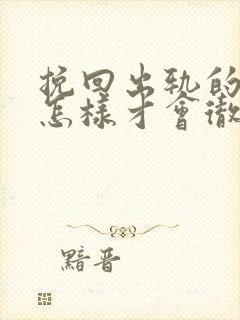 挽回出轨的
怎樣才會徹
黯晋